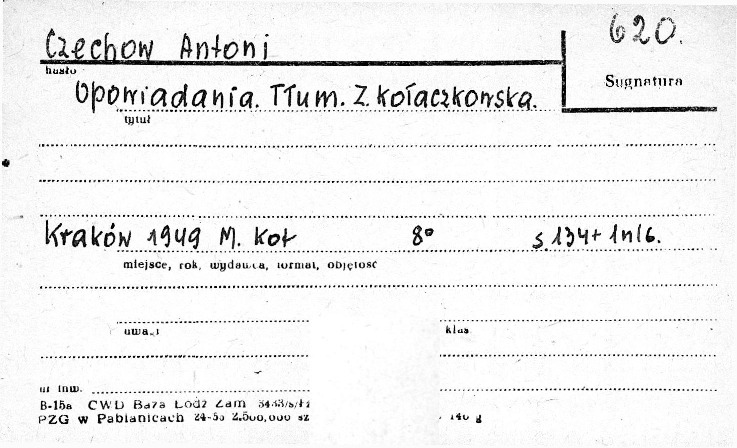 Czechow Antoni
620.
hasło
Sygnatura
Opowiadania. Tłum. Z. Kołaczkowska.
tytuł
Kraków 1949 M. Kot 8° s. 134+1nlb.
miejsce, rok, wydawca, format, objętość
uwagi
klas.
nr inw.
B-15a CWD Baza Łódź Zam
PZG w Pabianicach 2.500,000 sz 140 g